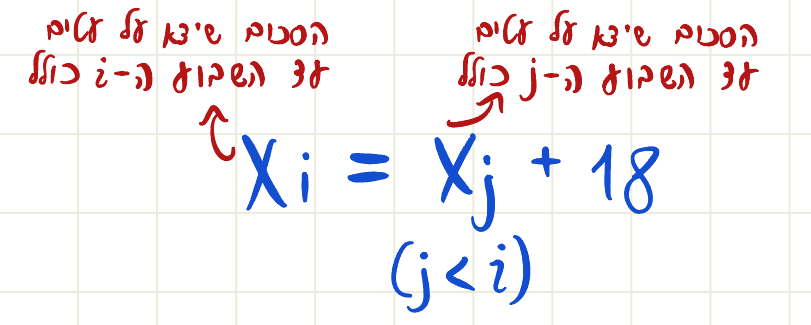 הסכום שיצא על עטים
עד השבוע ה-i כולל
הסכום שיצא על עטים
עד השבוע ה-j כולל
Xi = Xj + 18
(j < i)